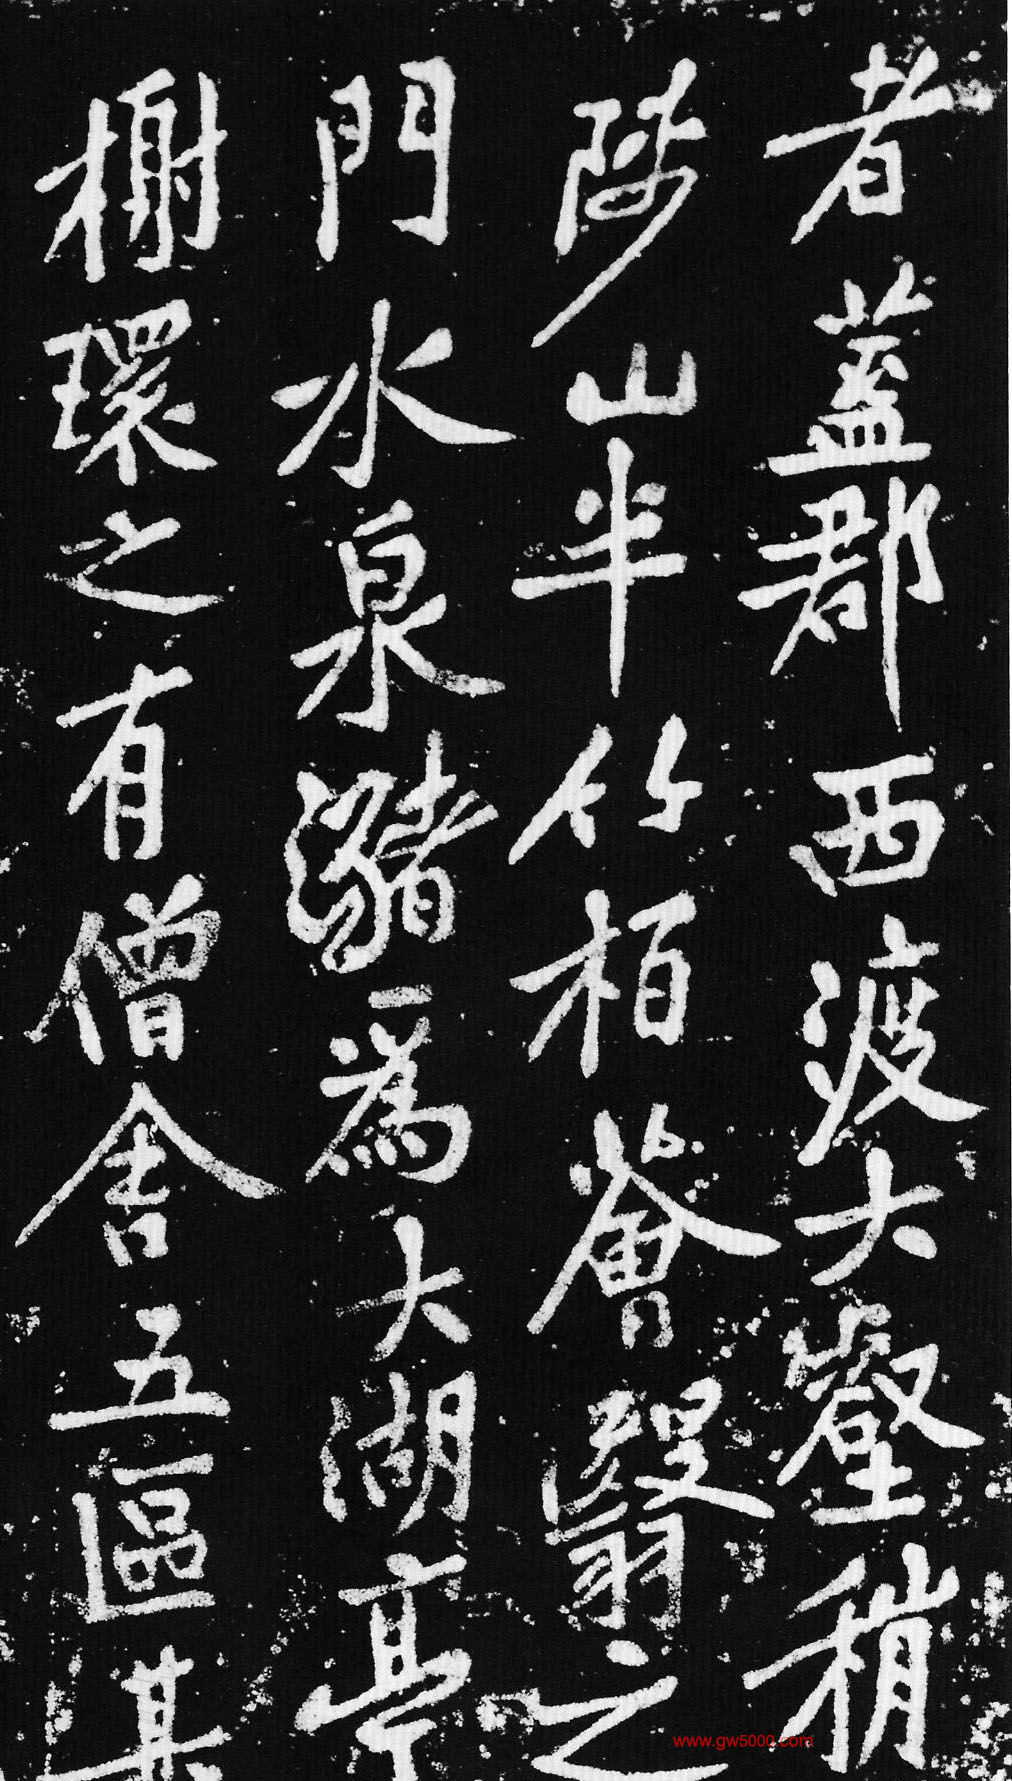 者蓋郡西渡大壑稍
陟山半竹栢薈翳之
門水泉瀦為大湖亭
榭環之有僧舍五區其
www.gw5000.com